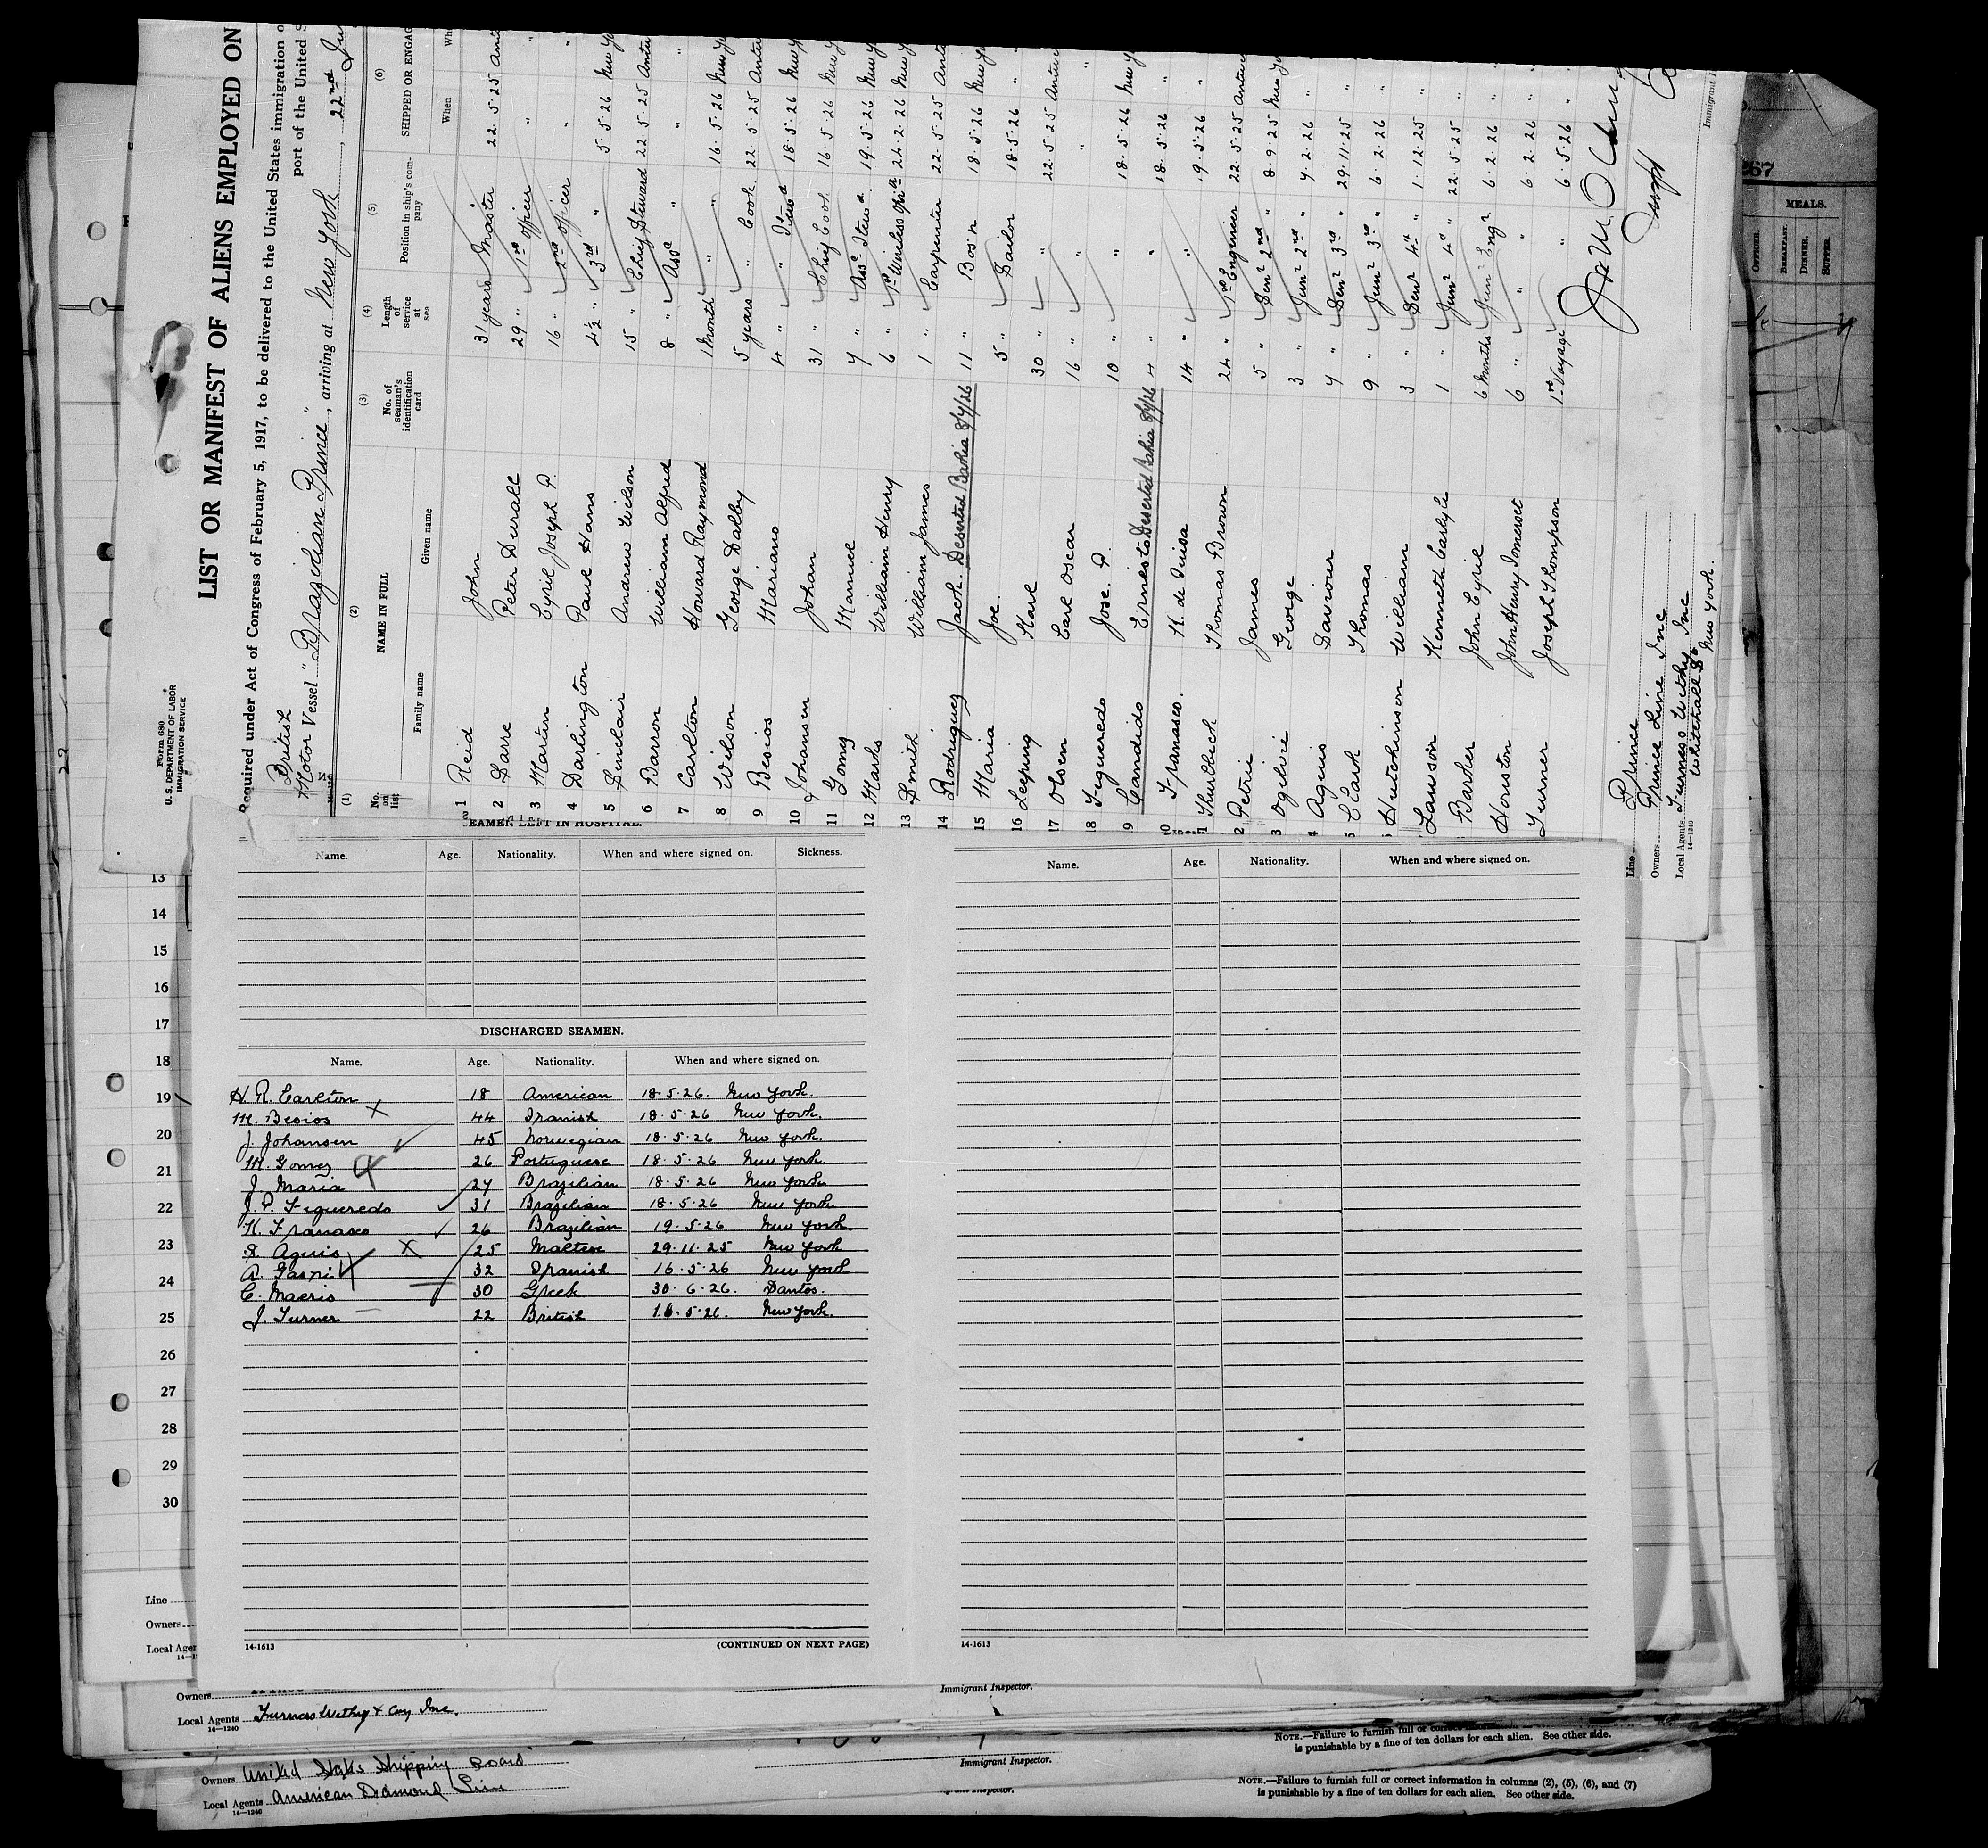 Form 680
U. S. DEPARTMENT OF LABOR
IMMIGRATION SERVICE
LIST OR MANIFEST OF ALIENS EMPLOYED ON
Required under Act of Congress of February 5, 1917, to be delivered to the United States immigration
port of the United
British
Motor Vessel "Brazilian Prince", arriving at New York, 22nd
(1) (2) (3) (4) (5) (6)
No. on list NAME IN FULL No. of seaman's identification card Length of service at sea Position in ship's company SHIPPED OR ENGAG
Family name Given name When
1 Reid John 31 years Master 22.5.25
2 Peter Durall 29 " 1st Officer "
3 Martin Cyril Joseph P. 16 " 2nd Officer "
4 Darlington Paul Hans 4½ " 3rd " 5.5.26
5 Sinclair Andrew Wilson 15 " Chief Steward 22.5.25
6 Barron William Alfred 8 " Asst " "
7 Carlton Howard Raymond 1 Month " " 16.5.26
8 Wilson George Dalby 5 years " Cook 22.5.25
9 Besios Mariano 4 " " Stewd 18.5.26
10 Johansen Johan 31 " Chief Cook 16.5.26
11 Gomez Manuel 7 " Asst Stewd 19.5.26
12 Marks William Henry 6 " 1st Wireless Opr 24.2.26
13 Smith William James 1 " Carpenter 22.5.25
14 Rodriguez Jacob. Deserted Bahia 8/7/26 11 " Bos'n 18.5.26
15 Maria Joe. 5 " Sailor 18.5.26
16 Leeping Karl 30 " " 22.5.25
17 Olsen Carl Oscar 16 " " "
18 Figueredo Jose. P. 10 " " 18.5.26
19 Candido Ernesto Deserted Bahia 8/7/26 4 " " 18.5.26
Fransasco. 14 " " 19.5.26
Thurlbeck Thomas Brown 24 " 1st Engineer 22.5.25
Petrie James 5 " Senr 2nd " 8.9.25
Ogilvie George 3 " Junr 2nd " 7.2.26
Agius Saviour 7 " Senr 3rd " 29.11.25
Clark Thomas 9 " Junr 3rd " 6.2.26
Hutchinson William 3 " Senr 4th " 1.12.25
Lawson Kenneth Carlyle 1 " Junr 4th " 22.5.25
Barker John Cyril 6 Months Junr Engr 6.2.26
Houston John Henry Somerset 6 " " 6.2.26
Turner Joseph Thompson 1st Voyage " 6.5.26
Line Prince
Owners Prince Line Inc
Local Agents Furness Withy Inc
14-1240
Whitehall St
New York.
267
MEALS.
OFFICER. BREAKFAST. DINNER. SUPPER.
SEAMEN LEFT IN HOSPITAL.
Name. Age. Nationality. When and where signed on. Sickness.
Name. Age. Nationality. When and where signed on.
DISCHARGED SEAMEN.
Name. Age. Nationality. When and where signed on.
H. R. Carlton 18 American 18.5.26. New York.
M. Besios 44 Spanish 18.5.26 New York.
J. Johansen 45 Norwegian 18.5.26 New York.
M. Gomez 26 Portuguese 18.5.26 New York.
J. Maria 27 Brazilian 18.5.26 New York
J. P. Figueredo 31 Brazilian 18.5.26 New York.
K. Fransasco 26 Brazilian 19.5.26 New York
S. Aguis 25 Maltese 29.11.25 New York
A. Gaspi 32 Spanish 16.5.26 New York
C. Macris 30 Greek 30.6.26. Santos.
J. Turner 22 British 16.5.26. New York.
14-1613
(CONTINUED ON NEXT PAGE)
14-1613
13
14
15
16
17
18
19
20
21
22
23
24
25
26
27
28
29
30
Line
Owners
Local Agen
Owners
Local Agents Furness Withy & Coy Inc.
14-1240
Immigrant Inspector.
NOTE.—Failure to furnish full or correct
is punishable by a fine of ten dollars for each alien. See other side.
Owners United States Shipping Board
Local Agents American Diamond Line
14-1240
Immigrant Inspector.
NOTE.—Failure to furnish full or correct information in columns (2), (5), (6), and (7)
is punishable by a fine of ten dollars for each alien. See other side.